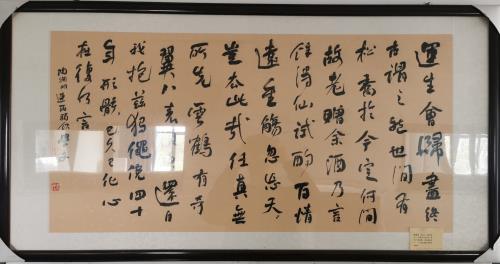 運生會歸盡終
古謂之然世間有
松喬於今定何間
故老贈余酒乃言
飲得仙試酌百情
遠重觴忽忘天
豈去此哉任真無
所先雲鶴有奇
翼八表須臾還自
我抱茲獨僶俛四十
年形骸已久已化心
在復何言
陶淵明連雨獨飲